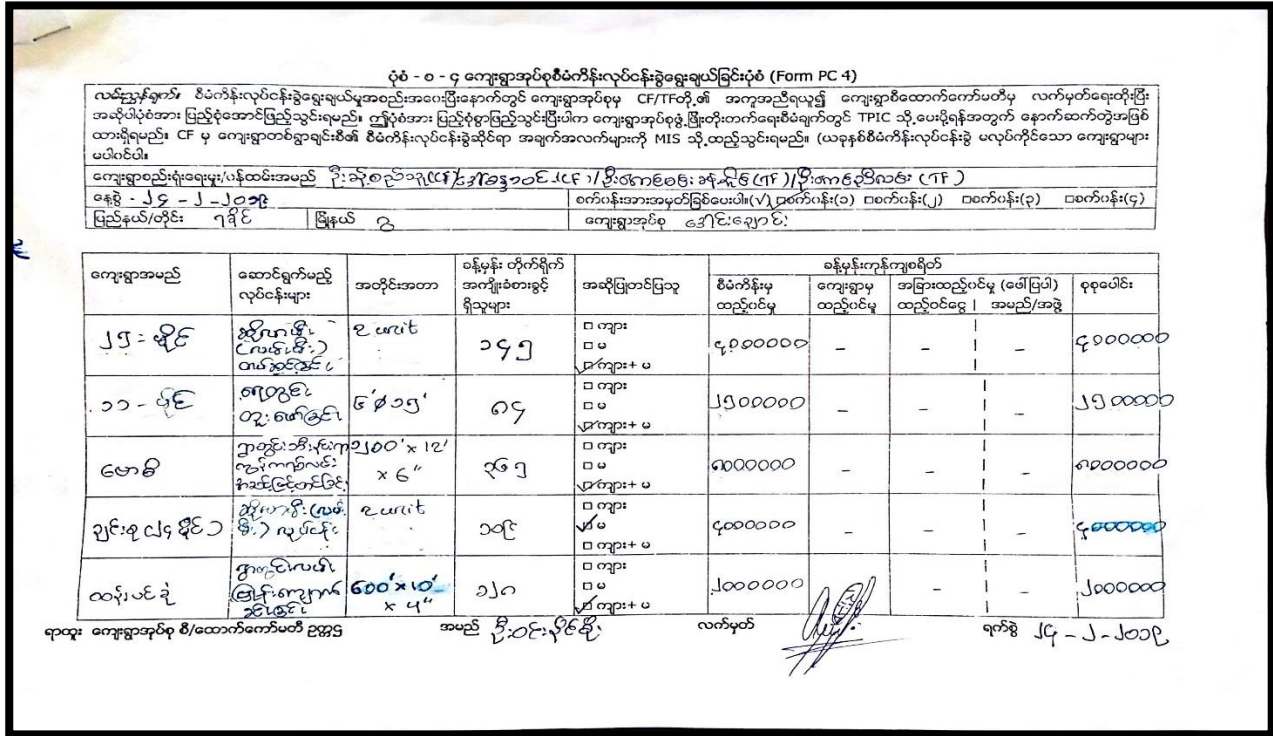 ပုံစံ - ၀ - ၄ ကျေးရွာအုပ်စုစီမံကိန်းလုပ်ငန်းခွဲရွေးချယ်ခြင်းပုံစံ (Form PC 4)
လမ်းညွှန်ချက်။ စီမံကိန်းလုပ်ငန်းခွဲရွေးချယ်မှုအစည်းအဝေးပြီးနောက်တွင် ကျေးရွာအုပ်စုမှ CF/TFတို့၏ အကူအညီရယူ၍ ကျေးရွာစီထောက်ကော်မတီမှ လက်မှတ်ရေးထိုးပြီး
အဆိုပါပုံစံအား ပြည့်စုံအောင်ဖြည့်သွင်းရမည်။ ဤပုံစံအား ပြည့်စုံစွာဖြည့်သွင်းပြီးပါက ကျေးရွာအုပ်စုဖွံ့ဖြိုးတိုးတက်ရေးစီမံချက်တွင် TPIC သို့ပေးပို့ရန်အတွက် နောက်ဆက်တွဲအဖြစ်
ထားရှိရမည်။ CF မှ ကျေးရွာတစ်ရွာချင်းစီ၏ စီမံကိန်းလုပ်ငန်းခွဲဆိုင်ရာ အချက်အလက်များကို MIS သို့ထည့်သွင်းရမည်။ (ယခုနှစ်စီမံကိန်းလုပ်ငန်းခွဲ မလုပ်ကိုင်သော ကျေးရွာများ
မပါဝင်ပါ။
ကျေးရွာစည်းရုံးရေးမှူး/ဝန်ထမ်းအမည်
နေ့စွဲ - ၂၄ - ၂ - ၂၀၁၉ စက်ဝန်းအားအမှတ်ခြစ်ပေးပါ။(√) □စက်ဝန်း(၁) □စက်ဝန်း(၂) □စက်ဝန်း(၃) □စက်ဝန်း(၄)
ပြည်နယ်/တိုင်း ရခိုင် မြို့နယ် ကျေးရွာအုပ်စု ဒေါင်းချောင်း
ကျေးရွာအမည် ဆောင်ရွက်မည့် လုပ်ငန်းများ အတိုင်းအတာ ခန့်မှန်း တိုက်ရိုက် အကျိုးခံစားခွင့် ရှိသူများ အဆိုပြုတင်ပြသူ ခန့်မှန်းကုန်ကျစရိတ်
စီမံကိန်းမှ ထည့်ဝင်မှု ကျေးရွာမှ ထည့်ဝင်မှု အခြားထည့်ဝင်မှု (ဖေါ်ပြပါ) ထည့်ဝင်ငွေ | အမည်/အဖွဲ့ စုစုပေါင်း
၂၅ - မိုင် ဆိုလာမီး (လမ်းမီး) တပ်ဆင်ခြင်း ၃ unit ၁၄၅ □ ကျား □ မ ☑ ကျား+ မ ၄၀၀၀၀၀၀ - - - ၄၀၀၀၀၀၀
၁၁ - မိုင် ရေတွင်း တူးဖော်ခြင်း ၆' ø ၁၅' ၈၄ □ ကျား □ မ ☑ ကျား+ မ ၂၅၀၀၀၀၀ - - - ၂၅၀၀၀၀၀
ဗောဓိ ၂၁၀၀' x 12' x 6" ၃၆၅ □ ကျား □ မ ☑ ကျား+ မ ၈၀၀၀၀၀၀ - - - ၈၀၀၀၀၀၀
ချင်းစု (၂၄ မိုင်) ဆိုလာမီး (လမ်းမီး) လုပ်ငန်း ၃ unit ၁၀၉ □ ကျား ☑ မ □ ကျား+ မ ၄၀၀၀၀၀၀ - - - ၄၀၀၀၀၀၀
ထန်းပင်ခုံ ရွာတွင်းလမ်း 600' x 10' x 4" ၁၂၈ □ ကျား □ မ ☑ ကျား+ မ ၂၀၀၀၀၀၀ - - - ၂၀၀၀၀၀၀
ရာထူး ကျေးရွာအုပ်စု စီ/ထောက်ကော်မတီ ဥက္ကဌ အမည် ဦးဝင်းနိုင်စိုး လက်မှတ် ရက်စွဲ ၂၄ - ၂ - ၂၀၁၉